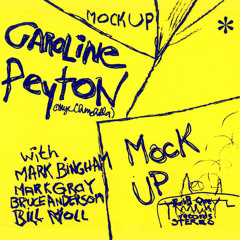 MOCKUP
CAROLINE
PEYTON
*
with
MARK BINGHAM
MARK GRAY
BRUCE ANDERSON
BILL NOLL
MOCK
UP
records
STEREO